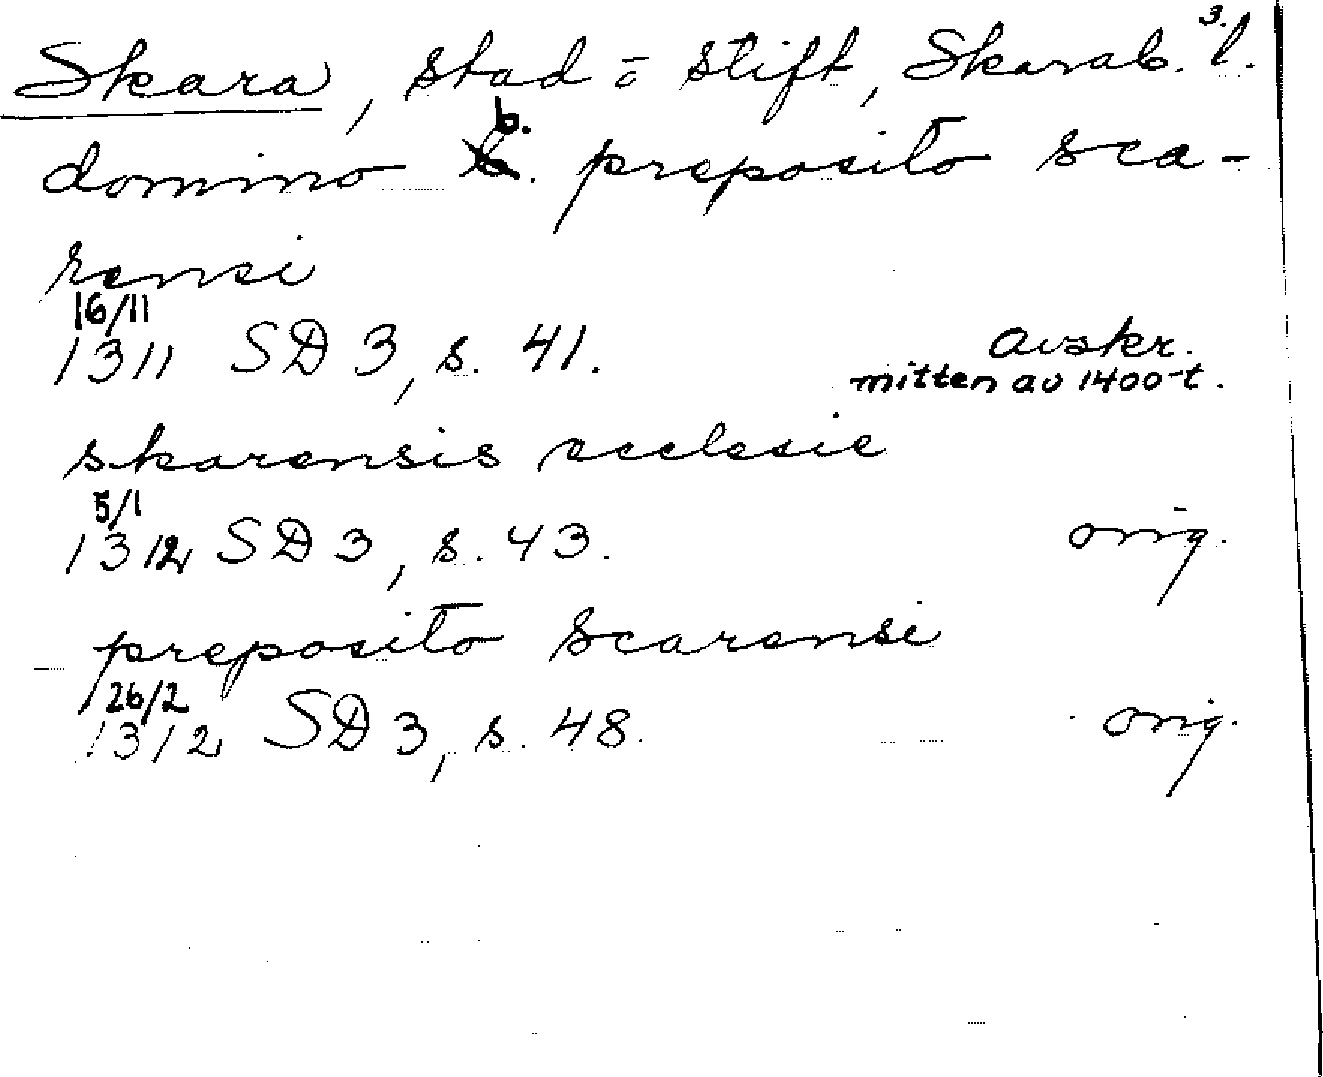 Skara, stad o stift, Skarab. l.
3.
domino b. preposito sca-
rensi
16/11
1311 SD 3, s. 41. Avskr.
mitten av 1400-t.
skarensis ecclesie
5/1
1312 SD 3, s. 43. orig.
preposito scarensi
26/2
1312 SD 3, s. 48. orig.